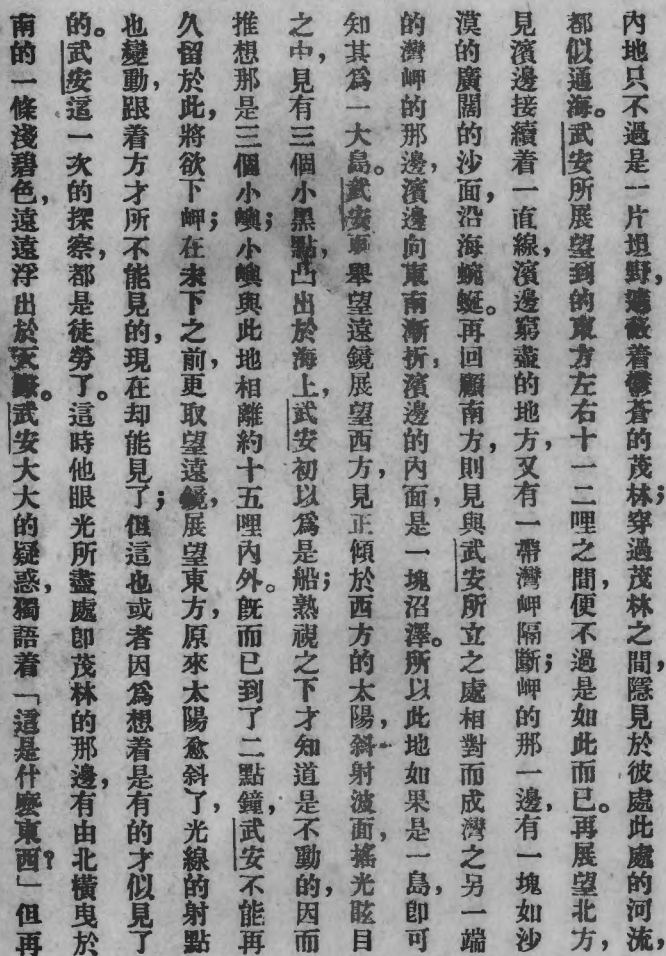 內地只不過是一片坦野，着鬱蒼的茂林；穿過茂林之間，隱見於彼處此處的河流，
都似通海。武安所展望到的東方左右十一二哩之間，便不過是如此而已。再展望北方，
見濱邊接續着一直線，濱邊窮盡的地方，又有一帶灣岬隔斷；岬的那一邊，有一塊如沙
漠的廣闊的沙面，沿海蜿蜒。再回顧南方，則見與武安所立之處相對而成灣之另一端
的灣岬的那邊，濱邊向東南漸折，濱邊的內面，是一塊沼澤。所以此地如果是一島，卽可
知其爲一大島。武安更舉望遠鏡展望西方，見正傾於西方的太陽，斜射波面，搖光眩目
之中，見有三個小黑點，凸出於海上，武安初以爲是船；熟視之下才知道是不動的，因而
推想那是三個小嶼；小嶼與此地相離約十五哩內外。旣而已到了二點鐘，武安不能再
久留於此，將欲下岬；在未下之前，更取望遠鏡，展望東方，原來太陽愈斜了，光線的射點
也變動，跟着方才所不能見的，現在却能見了；但這也或者因爲想着是有的才似見了
的。武安這一次的探察，都是徒勞了。這時他眼光所盡處卽茂林的那邊，有由北橫曳於
南的一條淺碧色，遠遠浮出於天際。武安大大的疑惑，獨語着「這是什麼東西？」但再